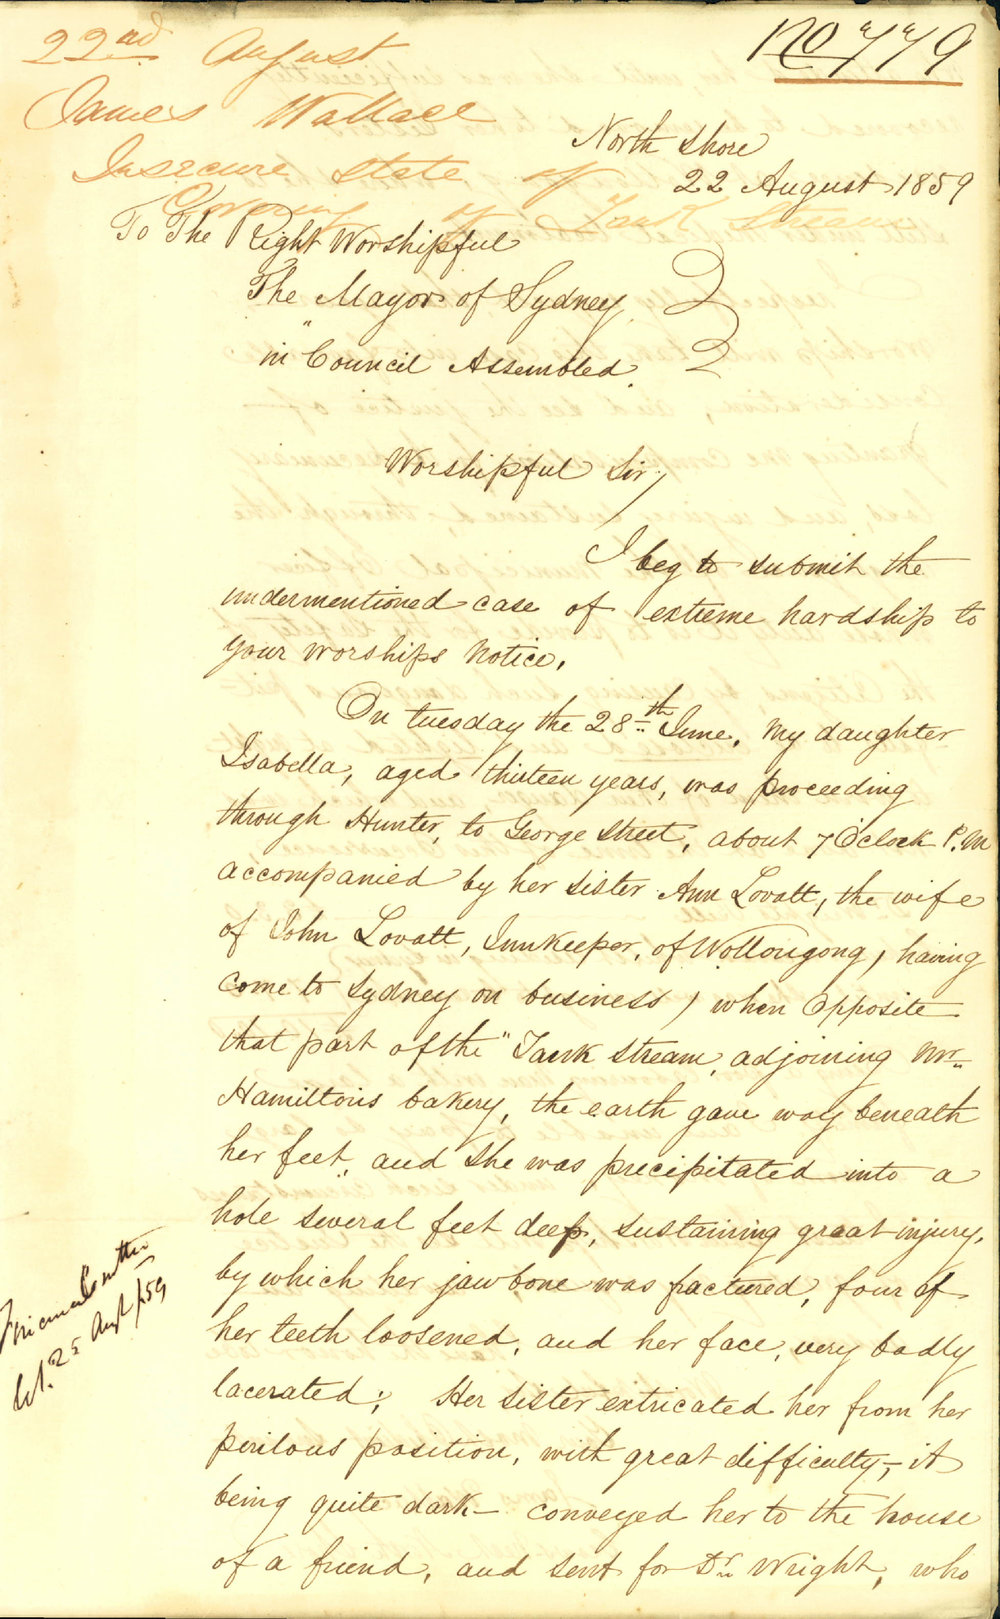 22nd August
No 779
James Wallace
Insecure State of
Covering of Tank Stream
North Shore
22 August 1859
To The Right Worshipful
The Mayor of Sydney
in Council Assembled.
Worshipful Sir,
I beg to submit the
undermentioned case of extreme hardship to
your worships notice.
On tuesday the 28th June, my daughter
Isabella, aged thirteen years, was proceeding
through Hunter, to George Street, about 7 O'Clock P.M
accompanied by her sister Ann Lovatt, the wife
of John Lovatt, Innkeeper, of Wollongong, having
come to Sydney on business, when opposite
that part of the "Tank Stream, adjoining Mr
Hamilton's bakery, the earth gave way beneath
her feet, and she was precipitated into a
hole several feet deep, sustaining great injury,
by which her jawbone was factured, four of
her teeth loosened, and her face, very badly
lacerated; Her sister extricated her from her
perilous position, with great difficulty, it
being quite dark – conveyed her to the house
of a friend, and sent for Dr Wright, who
Let. 25 Augt/59